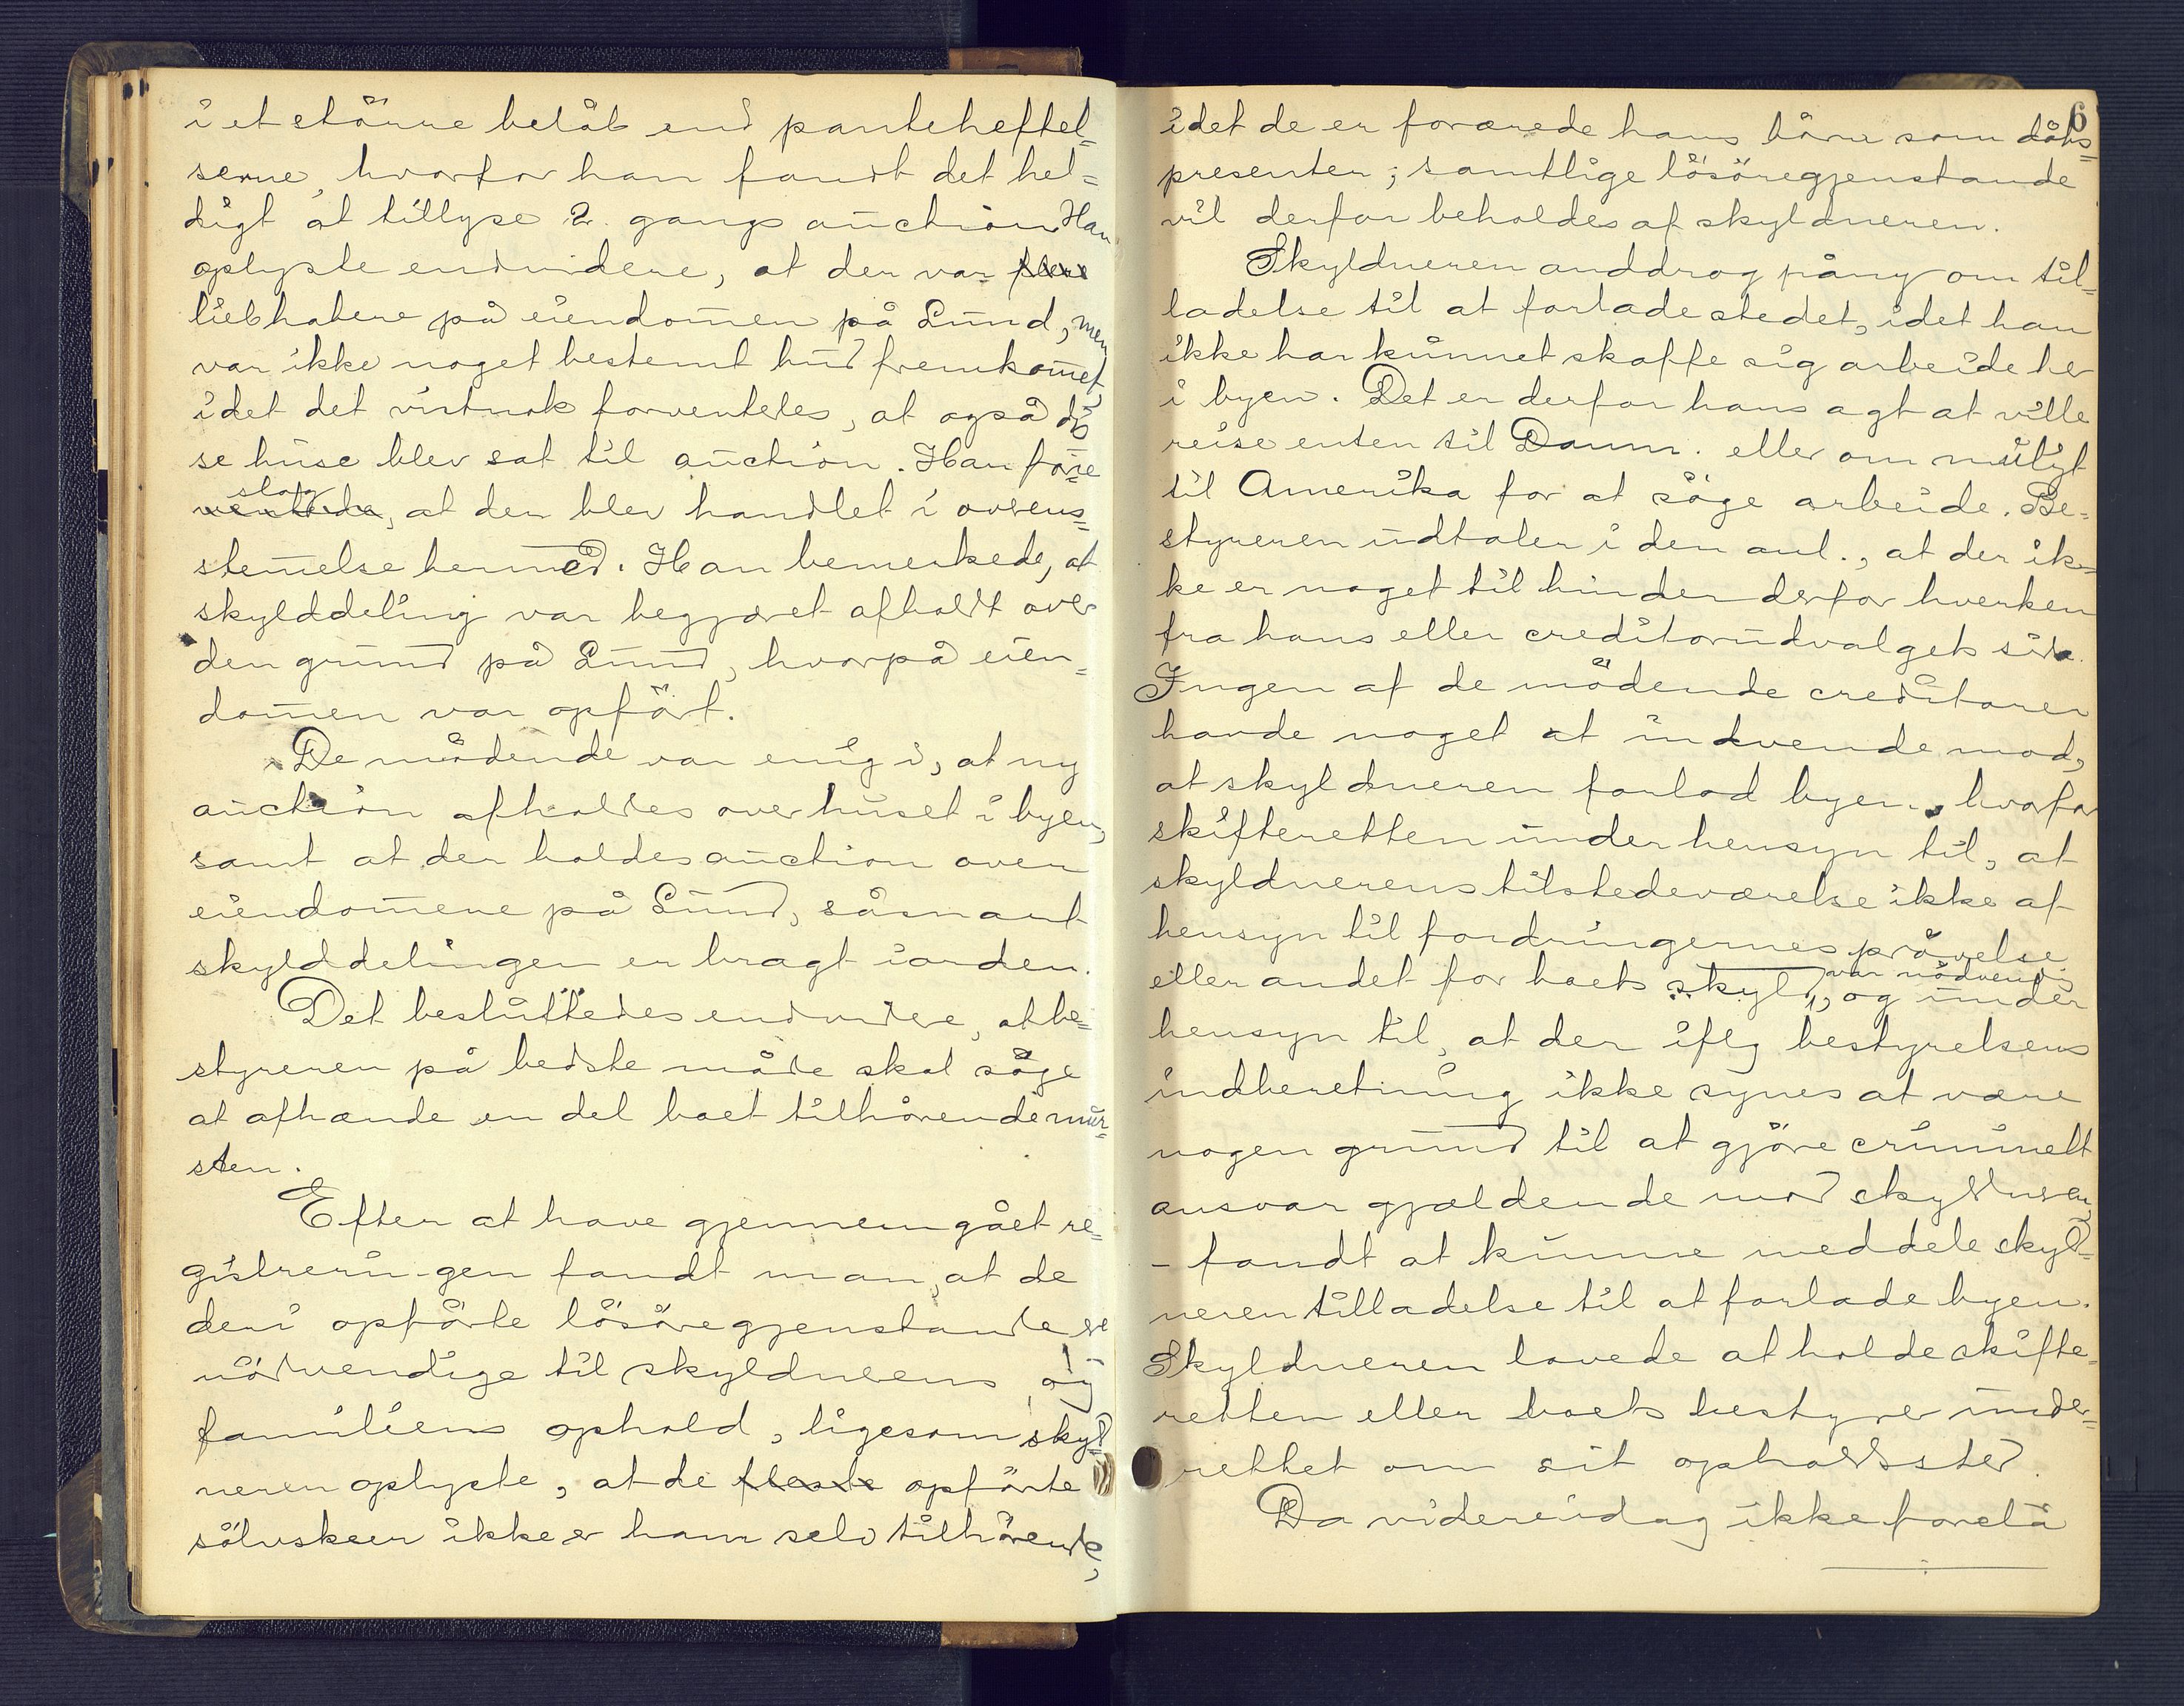 i et större belöb end panteheftel=
serne, hvorfor han fandt det hel=
digt at tillyse 2. gangs auction. Han
oplyste endvidere, at der var flere
liebhabere på eiendommen på Lund, men
var ikke noget bestemt bud fremkommet,
idet det vistnok forventedes, at også dis
se huse blev sat til auction. Han fore
slog
ventede, at der blev handlet i overens=
stemmelse hermed. Han bemerkede, at
skylddeling var begjæret afholdt over
den grund på Lund, hvorpå eien=
dommen var opfört.
De mödende var enig i, at ny
auction afholdes over huset i byen,
samt at der holdes auction over
eiendommene på Lund, såsnart
skylddelingen er bragt iorden.
Det besluttedes endvidere, at be=
styreren på bedste måde skal söge
at afhænde en del boet tilhörende mur=
sten.
Efter at have gjennemgået re=
gistreringen fandt man, at de
deri opförte lösöregjenstande er
nödvendige til skyldnerens og
familiens ophold, ligesom skyld=
neren oplyste, at de fleste opförte
sölvskeer ikke er ham selv tilhörende,
6
idet de er forærede hans börn som dåbs=
presenter; samtlige lösöregjenstande
vil derfor beholdes af skyldneren.
Skyldneren anddrog påny om til=
ladelse til at forlade stedet, idet han
ikke har kunnet skaffe sig arbeide her
i byen. Det er derfor hans agt at ville
reise enten til Danm. eller om muligt
til Amerika for at söge arbeide. Be=
styreren udtaler i den anl., at der ik=
ke er noget til hinder derfor hverken
fra hans eller creditorudvalgets side.
Ingen af de mödende creditorer
havde noget at indvende mod,
at skyldneren forlod byen, hvorfor
skifteretten under hensyn til, at
skyldnerens tilstedeværelse ikke af
hensyn til fordringernes prövelse
var nödvendig
eller andet for boets skyld, og under
hensyn til, at der iflg bestyrelsens
indberetning ikke synes at være
nogen grund til at gjöre criminelt
ansvar gjældende mod skyldneren,
- fandt at kunne meddele skyld=
neren tilladelse til at forlade byen.
Skyldneren lovede at holde skifte=
retten eller boets bestyrer under=
rettet om sit opholdssted.
Da videre idag ikke forelå